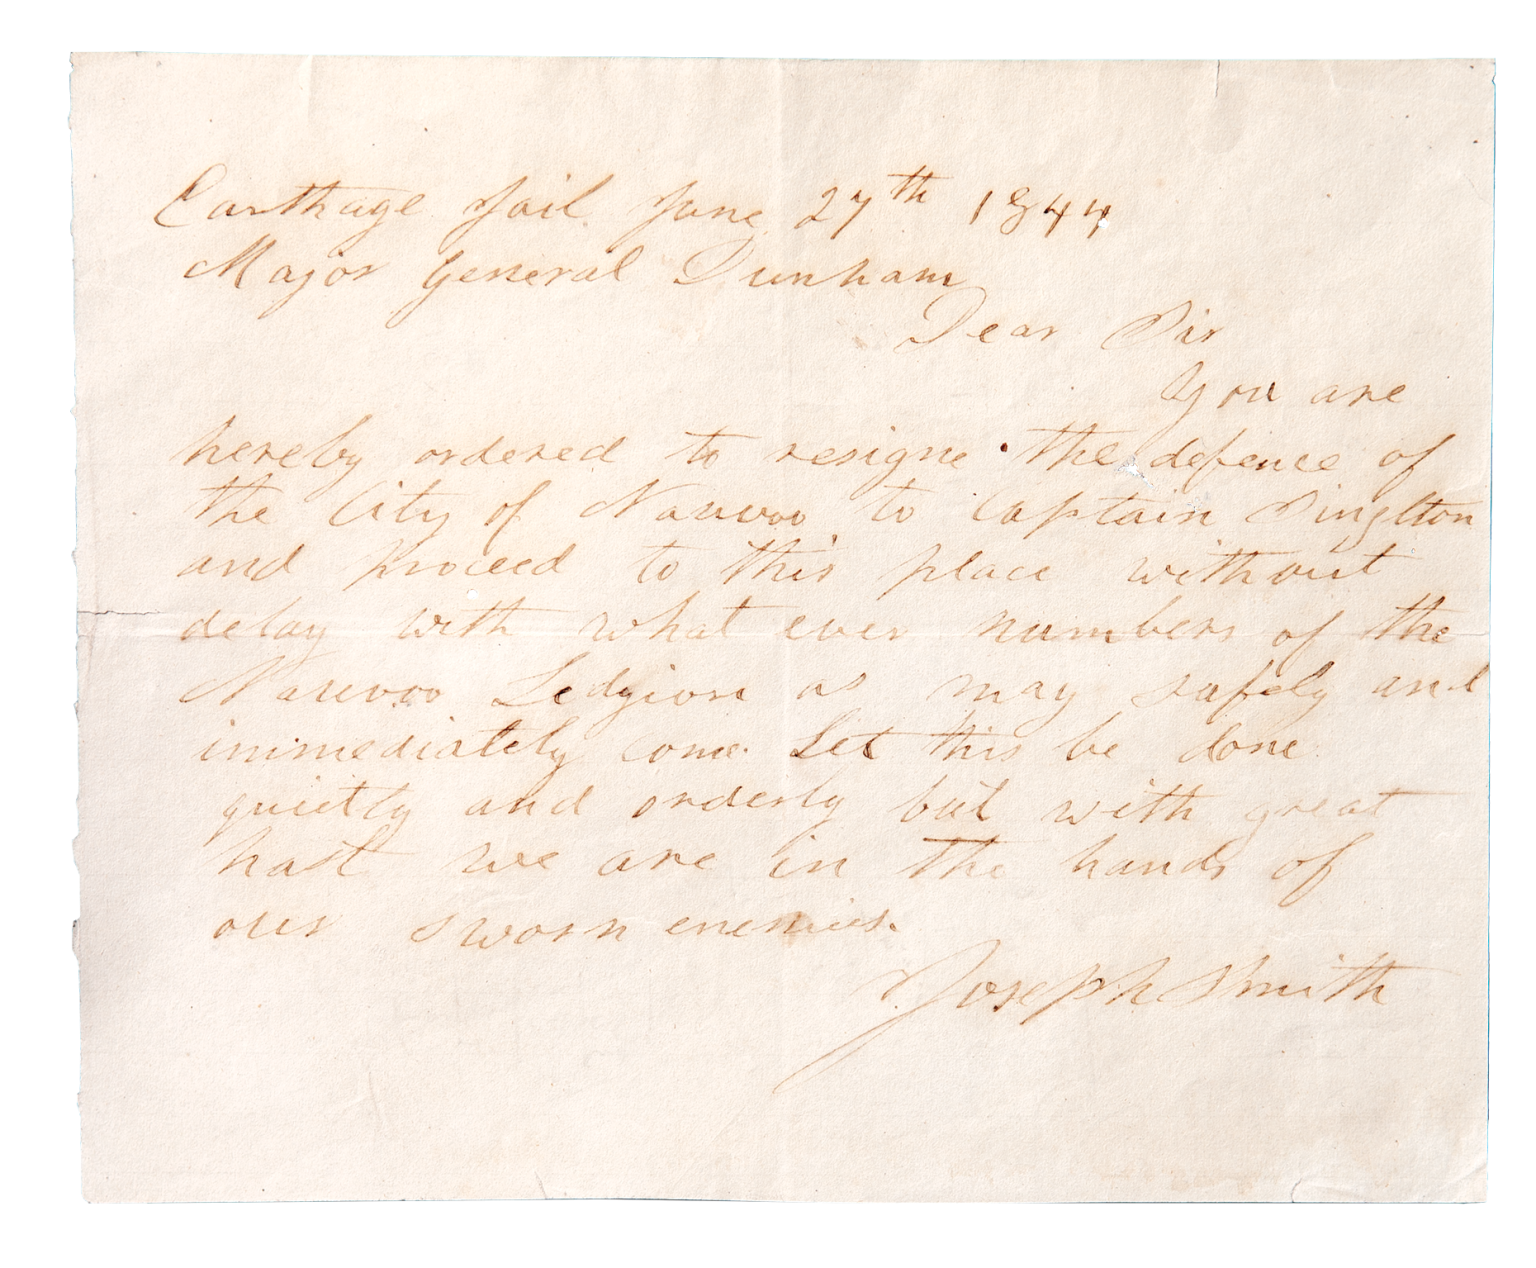 Carthage Jail June 27th 1844
Major General Dunham
Dear Sir
You are
hereby ordered to resigne the defence of
the City of Nauvoo to Captain Singlton
and proceed to this place without
delay with what ever numbers of the
Nauvoo Ledgion as may safely and
immediately come. Let this be done
quietly and orderly but with great
hast we are in the hands of
our sworn enemies.
Joseph Smith